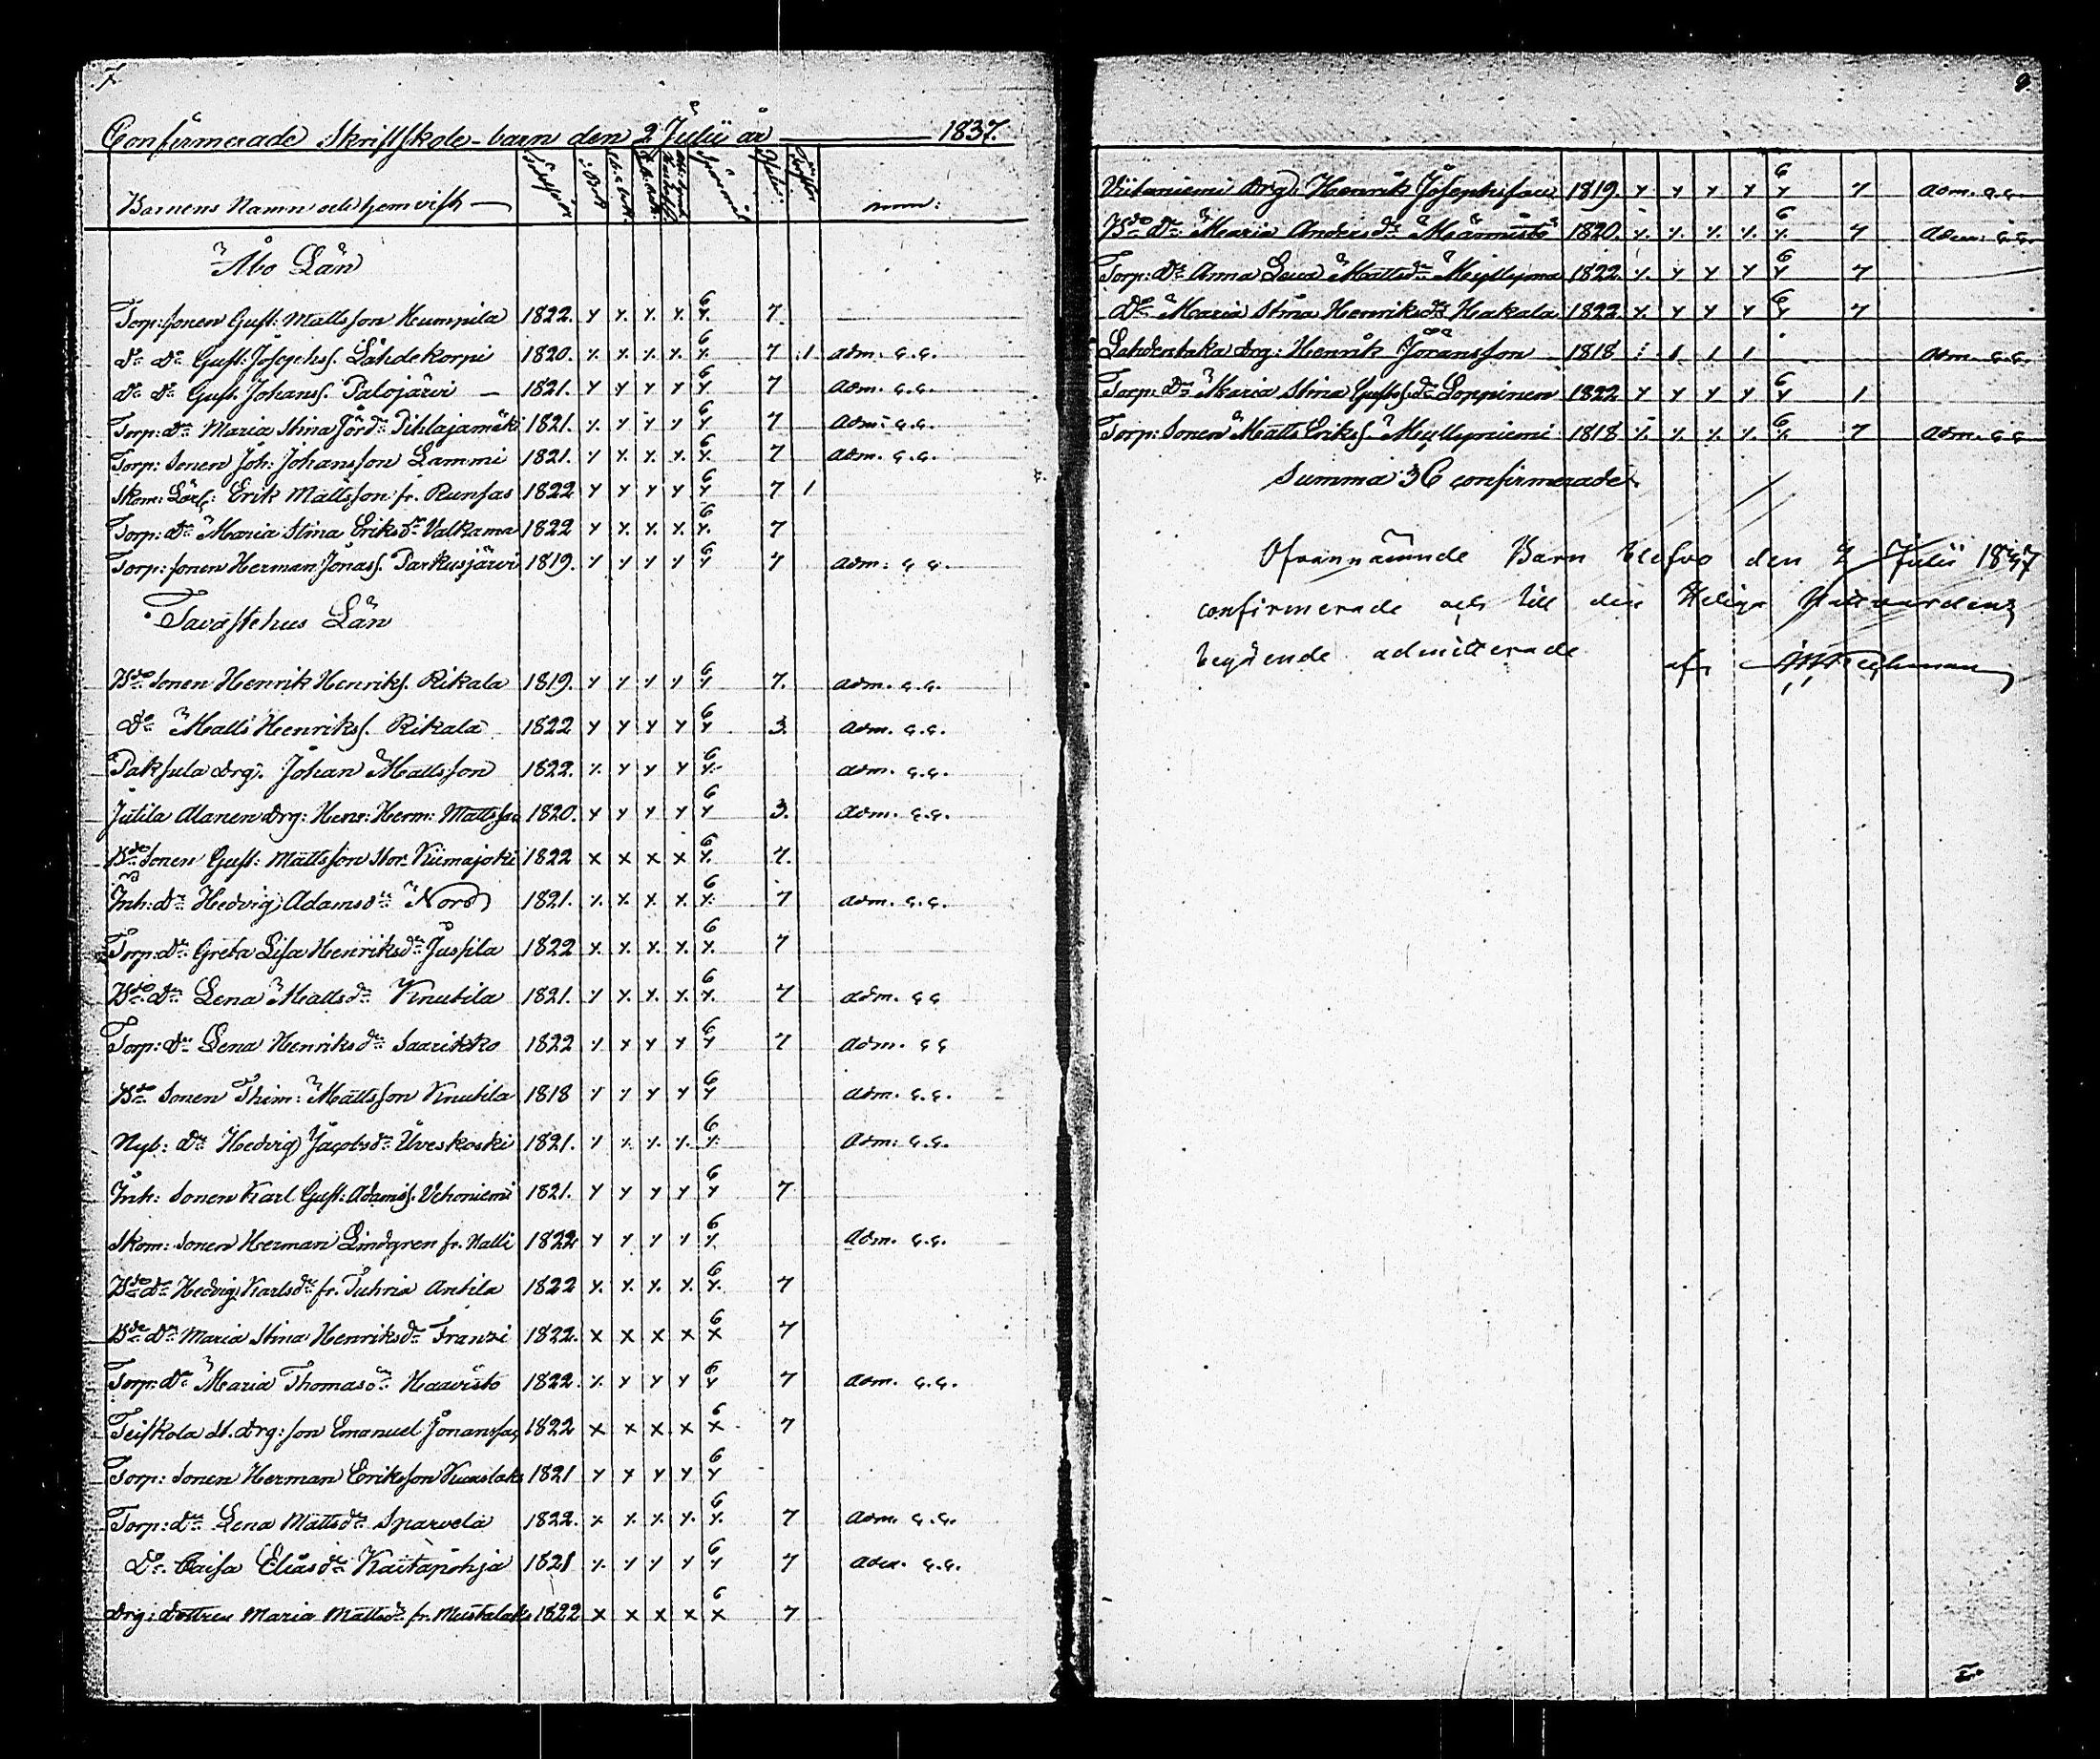 7.
Confirmerade Skriftskole-barn den 2 Julii år 1837.
Barnens Namn och hemvist Födelseår i Bok Spörsmål
Åbo Län
Torp: sonen Gust: Mattsson Humpila 1822. 6 7
do do Gust: Josephs. Lähdekorpi 1820. 6 7 1 adm. s.s.
do do Gust. Johans. Palojärvi 1821. 6 7 adm. s.s.
Torp: dr Maria Stina Jör.dr Pihlajamäki 1821. 6 7 adm. s.s.
Torp: sonen Joh: Johansson Lammi 1821. 6 7 adm. s.s.
Skom: Lärl: Erik Mattsson fr. Runsas 1822 6 7 1
Torp: dr Maria Stina Eriksdr Valkama 1822 6 7
Torp: sonen Herman Jonass. Parkusjärvi 1819. 6 7 adm. s.s.
Tavastehus Län
Bde sonen Henrik Henriks. Rikala 1819. 6 7. adm. s.s.
do Matts Henriks. Rikala 1822 6 3. adm. s.s.
Paksula drg. Johan Mattsson 1822. 6 adm. s.s.
Jutila Alanen drg: Henr: Herm: Mattsson 1820. 6 3. adm. s.s.
Bde sonen Gust: Mattsson Stor. Kiimajoki 1822 x x x x 6 7.
Inh: dr Hedvig Adamsdr Nord 1821. 6 7 adm. s.s.
Torp: dr Greta Lisa Henriksdr Jussila 1822 6 7
Bde dr Lena Mattsdr Knutila 1821. 6 7 adm. s s
Torp: dr Lena Henriksdr Saarikko 1822 6 7 adm. s s
Bde sonen Thim: Mattsson Knutila 1818 6 adm. s.s.
Nyb: dr Hedvig Jacobsdr Uveskoski 1821. 6 adm. s.s.
Inh: sonen Karl Gust: Adams. Vehoniemi 1821. 6 7
Skom: sonen Herman Lindgren fr. Nalli 1822 6 adm. s.s.
Bde dr Hedvig Karlsdr fr. Tuhria Antila 1822 6 7
Bde dr Maria Stina Henriksdr Franzi 1822. x x x x 6 x 7
Torp: dr Maria Thomasdr Haavisto 1822. 6 7 adm. s.s.
Teiskola drg: son Emanuel Johansson 1822 x x x x 6 x 7
Torp: sonen Herman Eriksson 1821 6
Torp: dr Lena Mattsdr Sparvela 1822. 6 7 adm. s.s.
Do. Caisa Eliasdr Kaitapohja 1821 6 7 adm. s.s.
drg: dottren Maria Mattsdr fr. Mustalaks 1822 x x x x 6 x 7
Viitaniemi drg: Henrik Josephsson 1819. 6 7 adm. s.s.
Bde dr Maria Andersdr Männistö 1820. 6 7 adm. s.s.
Torp: dr Anna Lena Mattsdr Myllyoma 1822. 6 7
do Maria Stina Henriksdr Hakala 1822. 6 7
Lahdentaka drg: Henrik Joransson 1818 1 1 1 adm. s.s.
Torp: dr Maria Stina Gustafsdr Loppinen 1822 6 1
Torp: Sonen Matts Eriks. Myllyniemi 1818 6 7 adm. s.s
Summa 36 confirmerade
Ofvannämnde Barn blefvo den 2 Julii 1837
confirmerade och till den Heliga Nattvardens
begående admitterade
af